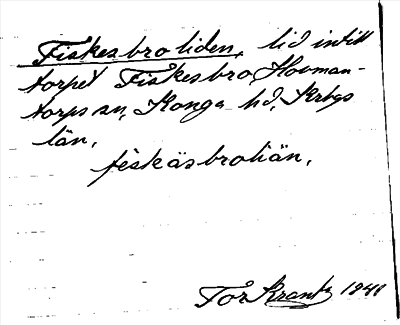 Fiskesbroliden, lid intill
torpet Fiskesbro, Hovman-
torps sn, Konga hd, Krbgs
län.
feskäsbroliän,
Tor Krantz 1941